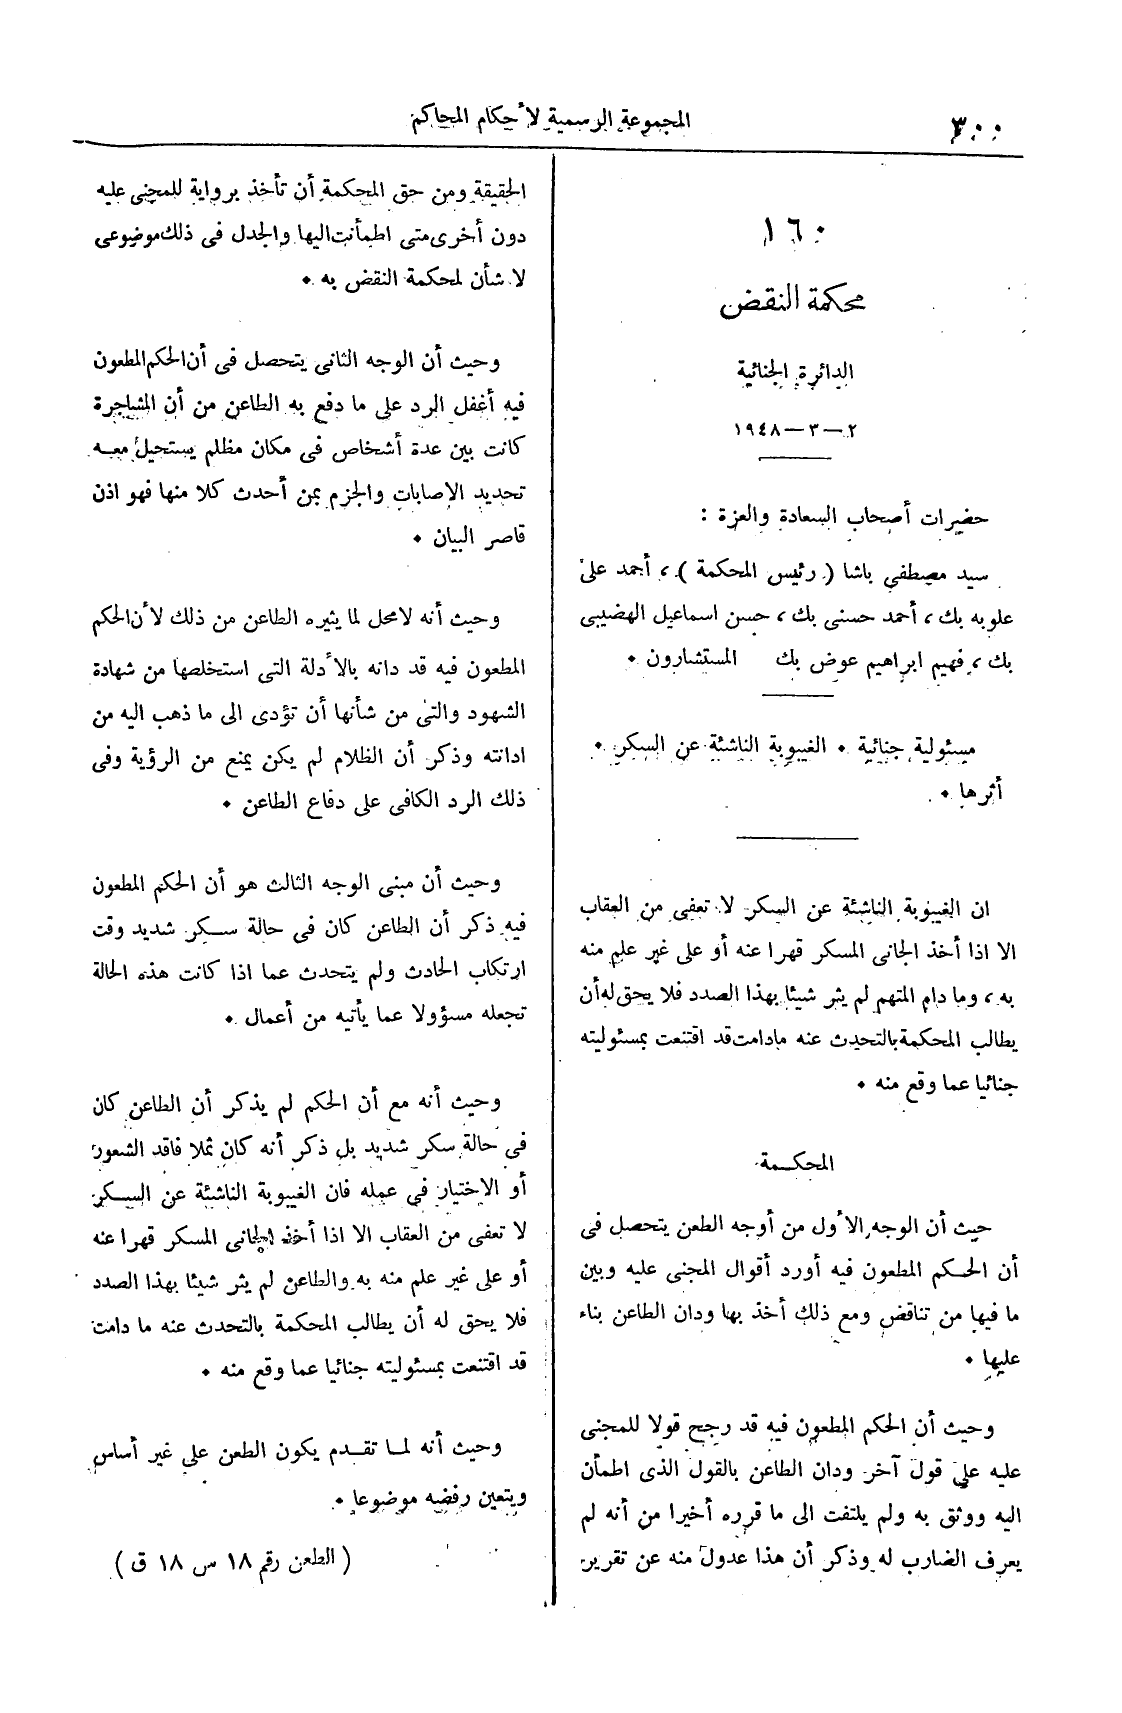 ٣٠٠
المجموعة الرسمية لأحكام المحاكم
١٦٠
محكمة النقض
الدائرة الجنائية
٢ — ٣ — ١٩٤٨
حضرات أصحاب السعادة والعزة :
سيد مصطفى باشا ( رئيس المحكمة ) ، أحمد على
علوبه بك ، أحمد حسنى بك ، حسن اسماعيل الهضيبى
بك ، فهيم ابراهيم عوض بك المستشارون .
مسئولية جنائية . الغيبوبة الناشئة عن السكر .
أثرها .
ان الغيبوبة الناشئة عن السكر لا تعفى من العقاب
الا اذا أخذ الجانى المسكر قهرا عنه أو على غير علم منه
به ، وما دام المتهم لم يثر شيئا بهذا الصدد فلا يحق له أن
يطالب المحكمة بالتحدث عنه مادامت قد اقتنعت بمسئوليته
جنائيا عما وقع منه .
المحكمة
حيث أن الوجه الأول من أوجه الطعن يتحصل فى
أن الحكم المطعون فيه أورد أقوال المجنى عليه وبين
ما فيها من تناقض ومع ذلك أخذ بها ودان الطاعن بناء
عليها .
وحيث أن الحكم المطعون فيه قد رجح قولا للمجنى
عليه على قول آخر ودان الطاعن بالقول الذى اطمأن
اليه ووثق به ولم يلتفت الى ما قرره أخيرا من أنه لم
يعرف الضارب له وذكر أن هذا عدول منه عن تقرير
الحقيقة ومن حق المحكمة أن تأخذ برواية للمجنى عليه
دون أخرى متى اطمأنت اليها والجدل فى ذلك موضوعى
لا شأن لمحكمة النقض به .
وحيث أن الوجه الثانى يتحصل فى أن الحكم المطعون
فيه أغفل الرد على ما دفع به الطاعن من أن المشاجرة
كانت بين عدة أشخاص فى مكان مظلم يستحيل معه
تحديد الإصابات والجزم بمن أحدث كلا منها فهو اذن
قاصر البيان .
وحيث أنه لا محل لما يثيره الطاعن من ذلك لأن الحكم
المطعون فيه قد دانه بالأدلة التى استخلصها من شهادة
الشهود والتى من شأنها أن تؤدى الى ما ذهب اليه من
ادانته وذكر أن الظلام لم يكن يمنع من الرؤية وفى
ذلك الرد الكافى على دفاع الطاعن .
وحيث أن مبنى الوجه الثالث هو أن الحكم المطعون
فيه ذكر أن الطاعن كان فى حالة سكر شديد وقت
ارتكاب الحادث ولم يتحدث عما اذا كانت هذه الحالة
تجعله مسؤولا عما يأتيه من أعمال .
وحيث أنه مع أن الحكم لم يذكر أن الطاعن كان
فى حالة سكر شديد بل ذكر أنه كان ثملا فاقد الشعور
أو الاختيار فى عمله فان الغيبوبة الناشئة عن السكر
لا تعفى من العقاب الا اذا أخذ الجانى المسكر قهرا عنه
أو على غير علم منه به والطاعن لم يثر شيئا بهذا الصدد
فلا يحق له أن يطالب المحكمة بالتحدث عنه ما دامت
قد اقتنعت بمسئوليته جنائيا عما وقع منه .
وحيث أنه لما تقدم يكون الطعن على غير أساس
ويتعين رفضه موضوعا .
( الطعن رقم ١٨ س ١٨ ق )